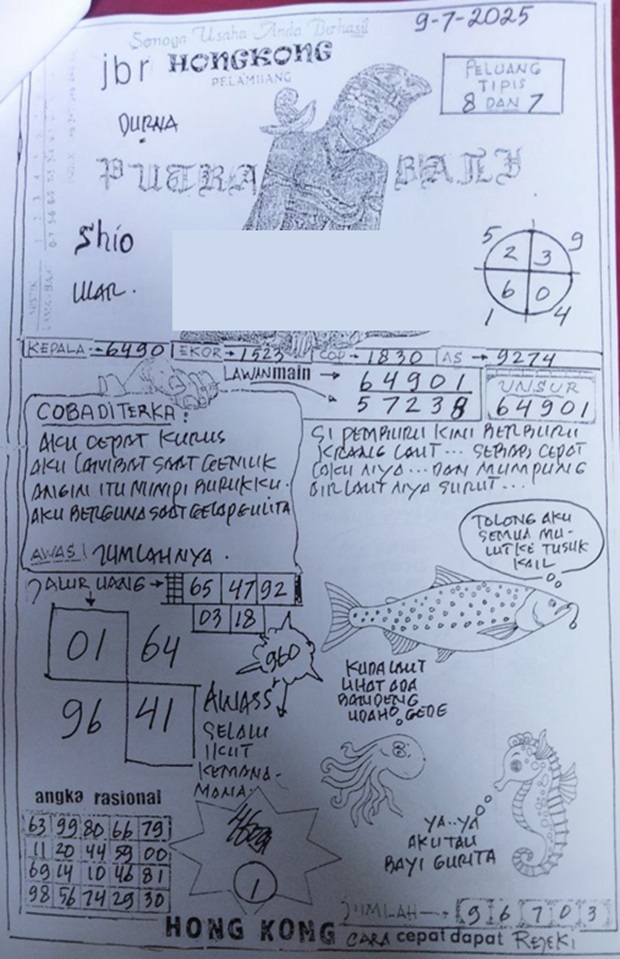 9-7-2025
Semoga Usaha Anda Berhasil
jbr HONGKONG
PELAMJIANG
PELUANG
TIPIS
8 DAN 7
DURNA
PUTRA BALI
Shio
ULAR.
5 9
2 3
6 0
1 4
KEPALA → 6490 EKOR → 1523 COP → 1830 AS → 9274
LAWAN main → 64901
57238
UNSUR
64901
COBA DITERKA:
AKU CEPAT KURUS
AKU LAMBAT SAAT GEMUK
ANGIN ITU MIMPI BURUKKU.
AKU BERGUNA SAAT GELAP GULITA
AWAS! JUMLAHNYA.
SI PEMBURU KINI BERBURU
KRANG LAUT... SEBAB CEPAT
LAKU NYA... DAN MUMPUNG
AIR LAUT NYA SURUT...
TOLONG AKU
SEMUA MU-
LUT KE TUSUK
KAIL
JALUR UANG → 65 47 92
03 18
01 64
96 41
960
AWASS
SELALU
IKUT
KEMANA-
MANA
KUDA LAUT
LIHAT ADA
BANDENG
UDAHO GEDE
YA..YA
AKU TAU
BAYI GURITA
angka rasional
63 99 80 66 79
11 20 44 59 00
69 14 10 46 81
98 56 74 29 30
1
JUMLAH → 9 6 7 0 3
HONG KONG CARA cepat dapat REJEKI